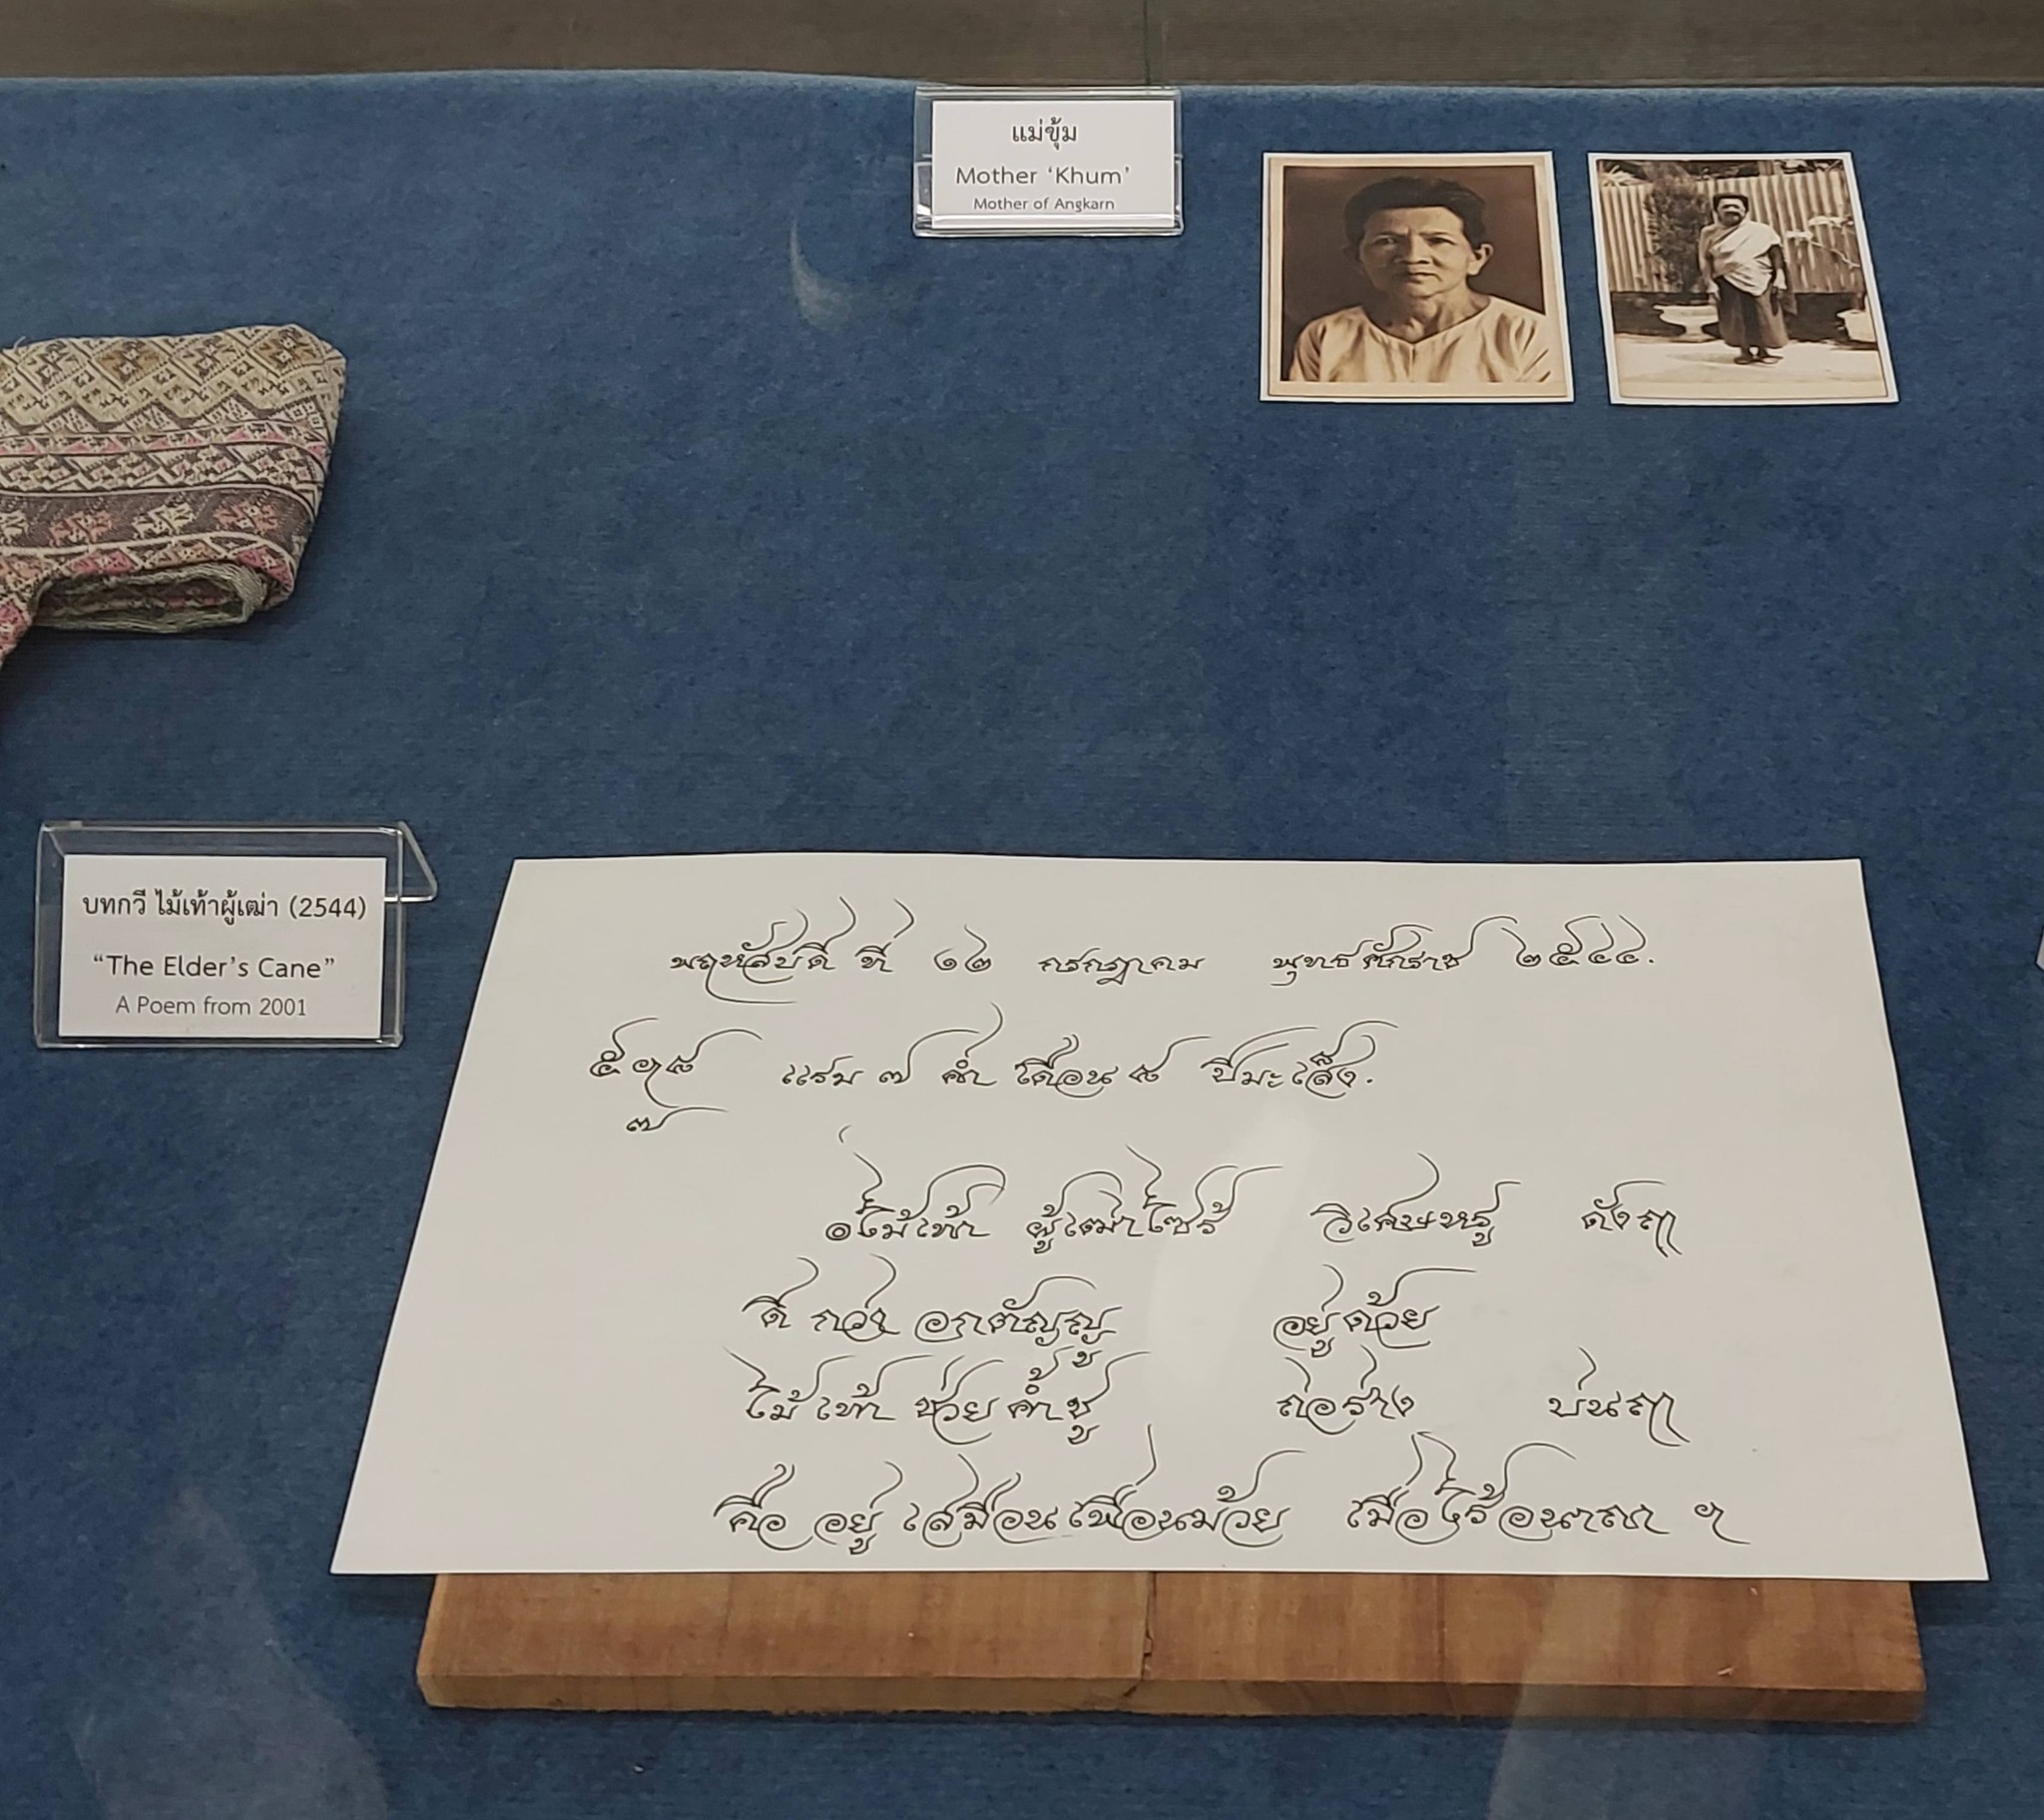 แม่ขุ้ม
Mother ‘Khum’
Mother of Angkarn
บทกวี ไม้เท้าผู้เฒ่า (2544)
“The Elder’s Cane”
A Poem from 2001
พฤหัสบดี ที่ ๑๒ กรกฎาคม พุทธศักราช ๒๕๔๔.
๕ ฯ ๘ แรม ๗ ค่ำ เดือน ๘ ปีมะเส็ง.
๗
๏ ไม้เท้า ผู้เฒ่าไซร้ วิเศษหรู ดังฤๅ
ดี กว่า อกตัญญู อยู่ด้วย
ไม้เท้า ช่วยค้ำชู ถ่อร่าง
คือ อยู่ เสมือนเพื่อนม้วย เมื่อไร้อนาถา ฯ